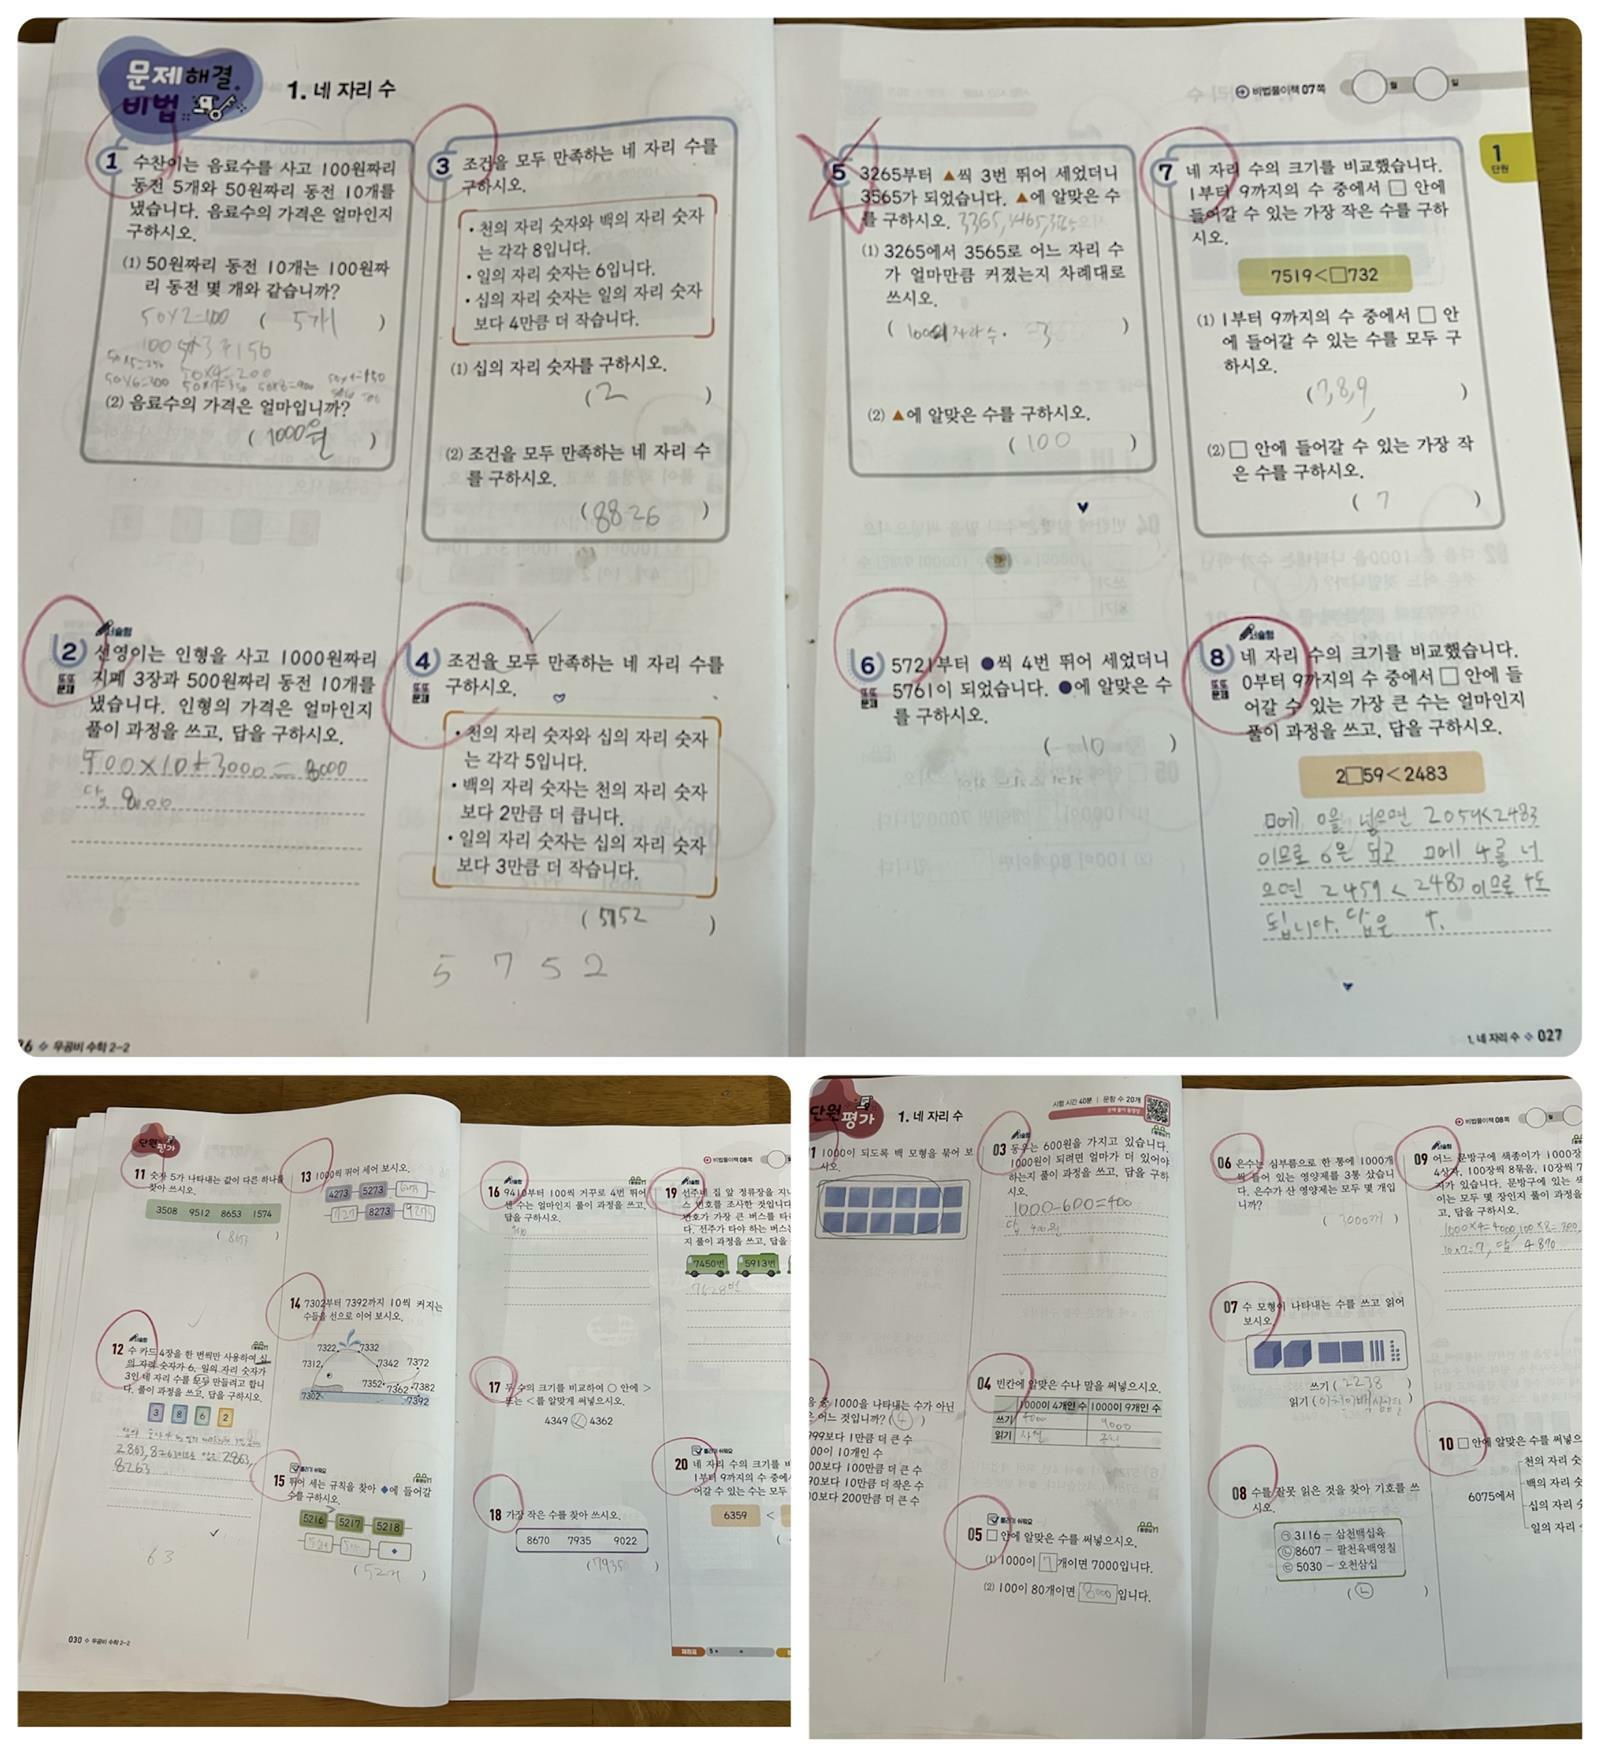 문제해결
비법
1. 네 자리 수
1 수찬이는 음료수를 사고 100원짜리
동전 5개와 50원짜리 동전 10개를
냈습니다. 음료수의 가격은 얼마인지
구하시오.
(1) 50원짜리 동전 10개는 100원짜
리 동전 몇 개와 같습니까?
50×2=100 ( 5개 )
50×4=200
50×6=300
(2) 음료수의 가격은 얼마입니까?
( 1000원 )
2 서술형
또또
문제
선영이는 인형을 사고 1000원짜리
지폐 3장과 500원짜리 동전 10개를
냈습니다. 인형의 가격은 얼마인지
풀이 과정을 쓰고, 답을 구하시오.
500×10+3000=8000
답 8000
3 조건을 모두 만족하는 네 자리 수를
구하시오.
• 천의 자리 숫자와 백의 자리 숫자
는 각각 8입니다.
• 일의 자리 숫자는 6입니다.
• 십의 자리 숫자는 일의 자리 숫자
보다 4만큼 더 작습니다.
(1) 십의 자리 숫자를 구하시오.
( 2 )
(2) 조건을 모두 만족하는 네 자리 수
를 구하시오.
( 8826 )
4 또또
문제
조건을 모두 만족하는 네 자리 수를
구하시오.
• 천의 자리 숫자와 십의 자리 숫자
는 각각 5입니다.
• 백의 자리 숫자는 천의 자리 숫자
보다 2만큼 더 큽니다.
• 일의 자리 숫자는 십의 자리 숫자
보다 3만큼 더 작습니다.
( 5752 )
5 7 5 2
26 ❖ 우공비 수학 2-2
비법풀이책 07쪽
월 일
1
단원
5 3265부터 ▲씩 3번 뛰어 세었더니
3565가 되었습니다. ▲에 알맞은 수
를 구하시오. 3365, 3465, 3565
(1) 3265에서 3565로 어느 자리 수
가 얼마만큼 커졌는지 차례대로
쓰시오.
(2) ▲에 알맞은 수를 구하시오.
( 100 )
6 또또
문제
5721부터 ●씩 4번 뛰어 세었더니
5761이 되었습니다. ●에 알맞은 수
를 구하시오.
( 10 )
7 네 자리 수의 크기를 비교했습니다.
1부터 9까지의 수 중에서 □ 안에
들어갈 수 있는 가장 작은 수를 구하
시오.
7519<□732
(1) 1부터 9까지의 수 중에서 □ 안
에 들어갈 수 있는 수를 모두 구
하시오.
( 7,8,9 )
(2) □ 안에 들어갈 수 있는 가장 작
은 수를 구하시오.
( 7 )
8 서술형
또또
문제
네 자리 수의 크기를 비교했습니다.
0부터 9까지의 수 중에서 □ 안에 들
어갈 수 있는 가장 큰 수는 얼마인지
풀이 과정을 쓰고, 답을 구하시오.
2□59<2483
□에 0을 넣으면 2059<2483
이므로 0은 되고 □에 4를 너
으면 2459<2483이므로 4도
됩니다. 답은 4.
1. 네 자리 수 ❖ 027
단원
평가
11 숫자 5가 나타내는 값이 다른 하나를
찾아 쓰시오.
3508 9512 8653 1574
( 8653 )
12 서술형
수 카드 4장을 한 번씩만 사용하여 십
의 자리 숫자가 6, 일의 자리 숫자가
3인 네 자리 수를 모두 만들려고 합니
다. 풀이 과정을 쓰고, 답을 구하시오.
3 8 6 2
8263
63
13 1000씩 뛰어 세어 보시오.
4273 5273 6273
7273 8273 9273
14 7302부터 7392까지 10씩 커지는
수들을 선으로 이어 보시오.
7322 7332
7312 7342 7372
7352 7362 7382
7302 7392
15 틀리기 쉬워요
뛰어 세는 규칙을 찾아 ◆에 들어갈
수를 구하시오.
5216 5217 5218
◆
030 ❖ 우공비 수학 2-2
비법풀이책 08쪽
16 서술형
9410부터 100씩 거꾸로 4번 뛰어
센 수는 얼마인지 풀이 과정을 쓰고,
답을 구하시오.
17 두 수의 크기를 비교하여 ○ 안에 >
또는 <를 알맞게 써넣으시오.
4349 < 4362
18 가장 작은 수를 찾아 쓰시오.
8670 7935 9022
19 서술형
선주네 집 앞 정류장을 지나
스 번호를 조사한 것입니다
번호가 가장 큰 버스를 타
다. 선주가 타야 하는 버스는
지 풀이 과정을 쓰고, 답을
7450번 5913번
7628번
20 틀리기 쉬워요
네 자리 수의 크기를 비
1부터 9까지의 수 중에서
어갈 수 있는 수는 모두
6359 <
단원
평가
1. 네 자리 수
시험 시간 40분 | 문항 수 20개
1 1000이 되도록 백 모형을 묶어 보
시오.
음 중 1000을 나타내는 수가 아닌
은 어느 것입니까? ( 4 )
999보다 1만큼 더 큰 수
00이 10개인 수
00보다 100만큼 더 큰 수
90보다 10만큼 더 작은 수
00보다 200만큼 더 큰 수
03 서술형
동우는 600원을 가지고 있습니다.
1000원이 되려면 얼마가 더 있어야
하는지 풀이 과정을 쓰고, 답을 구하
시오.
1000-600=400
답 400원
04 빈칸에 알맞은 수나 말을 써넣으시오.
1000이 4개인 수 1000이 9개인 수
쓰기 4000 9000
읽기 사천 구천
05 틀리기 쉬워요
□ 안에 알맞은 수를 써넣으시오.
(1) 1000이 7 개이면 7000입니다.
(2) 100이 80개이면 8000 입니다.
비법풀이책 08쪽
06 은수는 심부름으로 한 통에 1000개
씩 들어 있는 영양제를 3통 샀습니
다. 은수가 산 영양제는 모두 몇 개입
니까?
( 3000개 )
07 수 모형이 나타내는 수를 쓰고 읽어
보시오.
쓰기 ( 2238 )
읽기 ( 이천이백삼십팔 )
08 수를 잘못 읽은 것을 찾아 기호를 쓰
시오.
㉠ 3116 - 삼천백십육
㉡ 8607 - 팔천육백영칠
㉢ 5030 - 오천삼십
( ㉡ )
09 서술형
어느 문방구에 색종이가 1000장
4상자, 100장씩 8묶음, 10장씩 7
지가 있습니다. 문방구에 있는 색
이는 모두 몇 장인지 풀이 과정을
고, 답을 구하시오.
답 4870
10 □ 안에 알맞은 수를 써넣으
6075에서
천의 자리 숫
백의 자리 숫
십의 자리 숫
일의 자리 숫